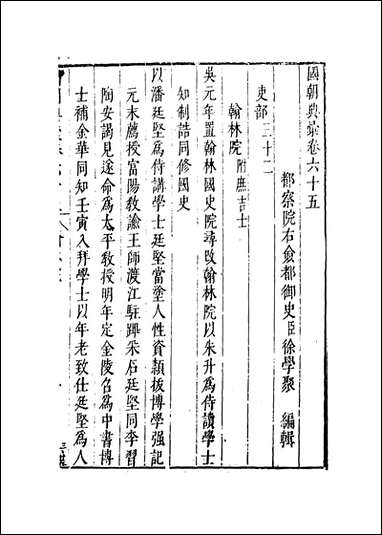 國朝典彙卷六十五
都察院右僉都御史臣徐學聚 編輯
吏部三十二
翰林院附庶吉士
吳元年置翰林國史院尋改翰林院以朱升為侍讀學士
知制誥同修國史
以潘廷堅為侍講學士廷堅當塗人性資穎拔博學强記
元末薦授富陽敎諭王師渡江駐蹕采石廷堅同李習
陶安謁見遂命為太平敎授明年定金陵召為中書博
士補金華同知壬寅入拜學士以年老致仕廷堅為人